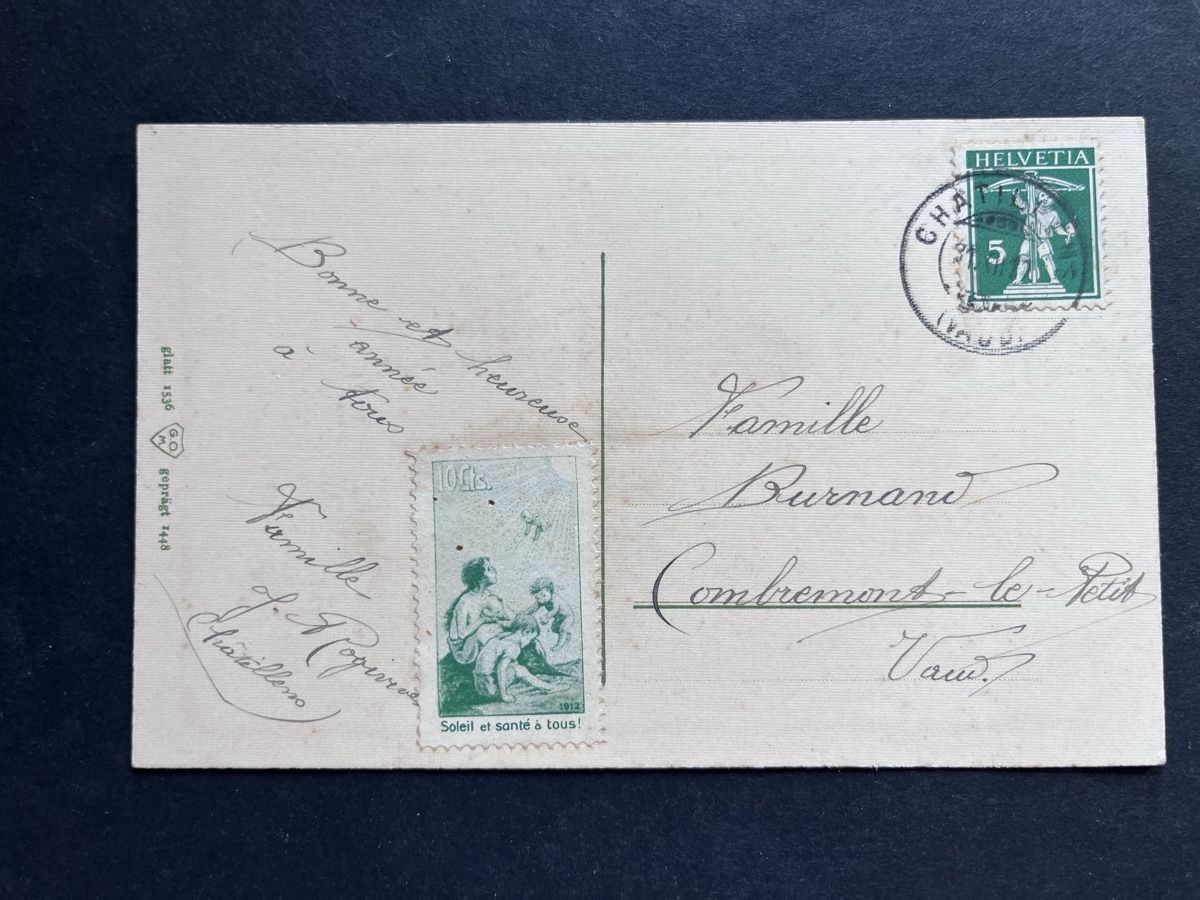 Bonne et heureuse
année
à tous
Famille
J.
Châtillens
glatt 1536
G.O.
M.
geprägt 1448
10 Cts.
1912
Soleil et santé à tous!
HELVETIA
5
(VAUD)
Famille
Burnand
Combremont-le-Petit
Vaud.